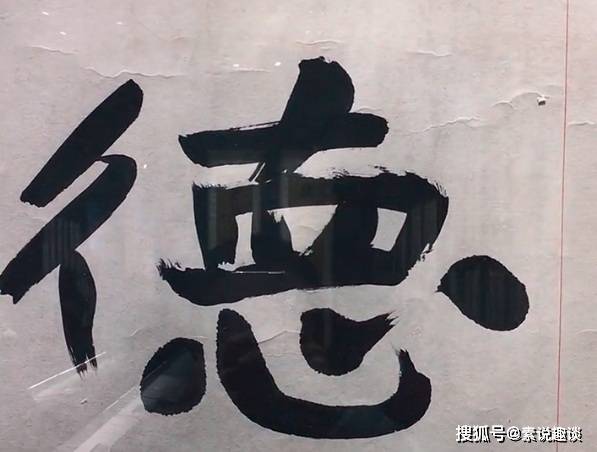 徳
搜狐号@素说趣谈